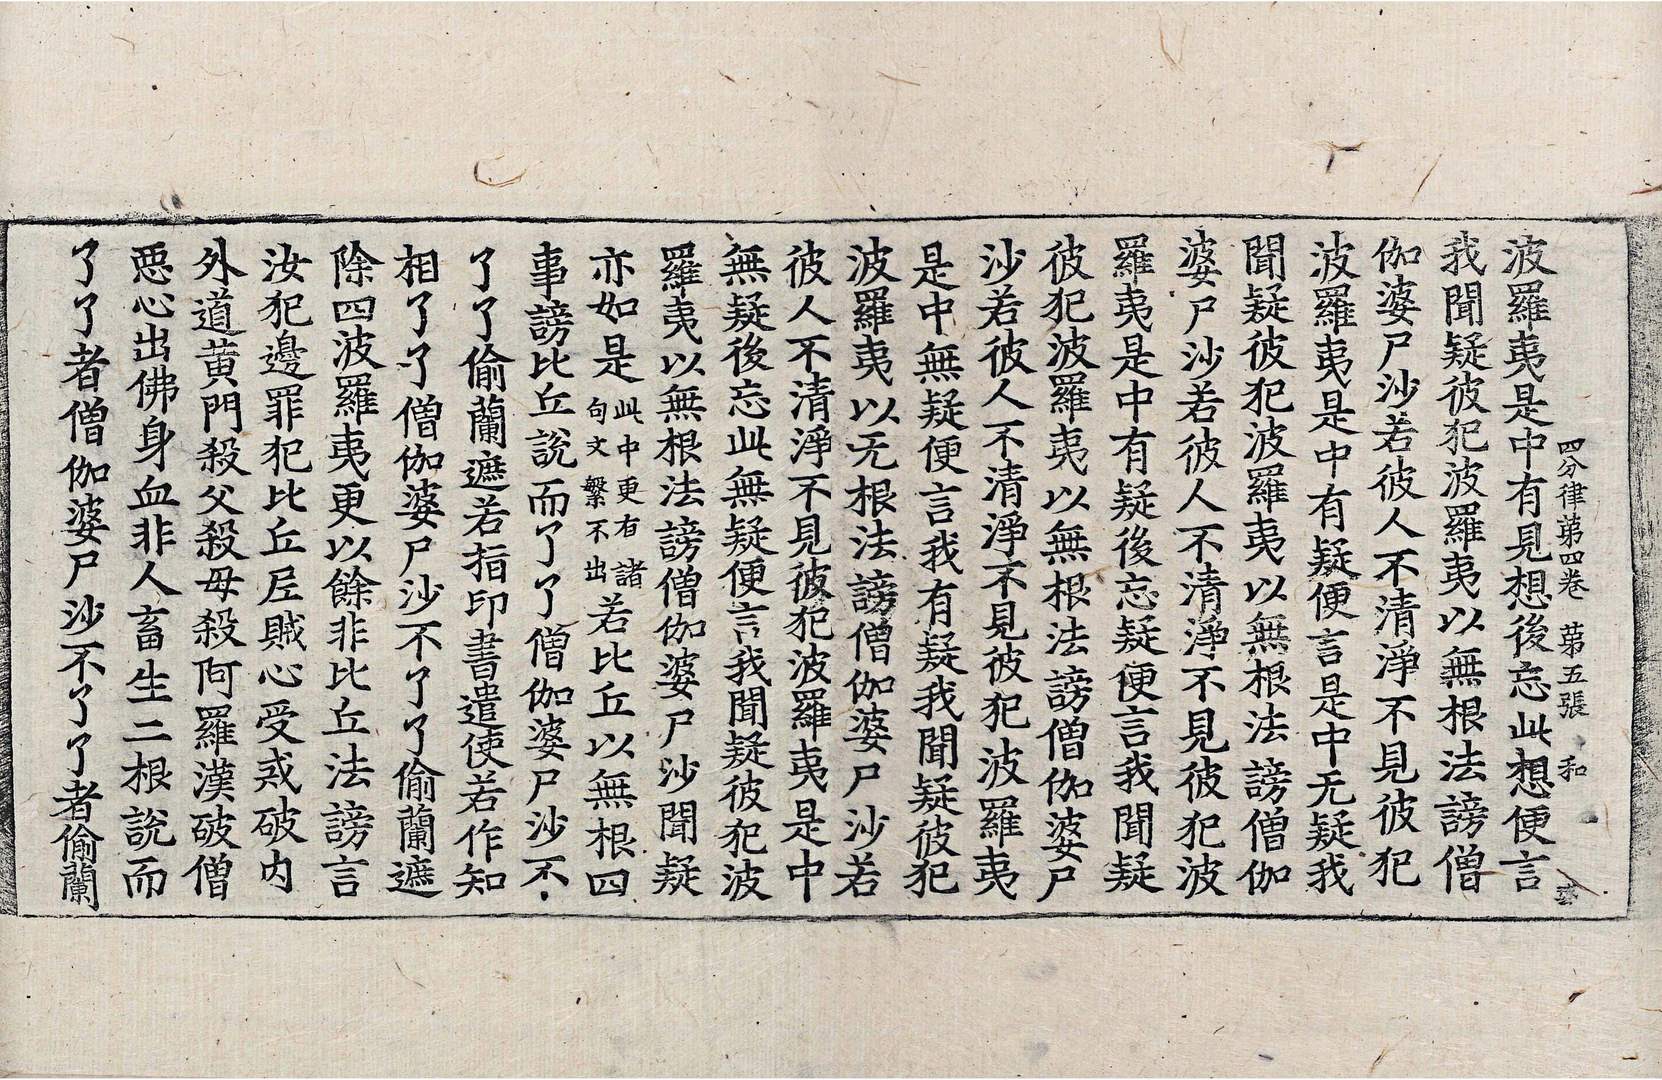 四分律苐四卷 苐五張 和
波羅夷是中有見想後忘此想便言
我聞疑彼犯波羅夷以無根法謗僧
伽婆尸沙若彼人不清淨不見彼犯
波羅夷是中有疑便言是中无疑我
聞疑彼犯波羅夷以無根法謗僧伽
婆尸沙若彼人不清淨不見彼犯波
羅夷是中有疑後忘疑便言我聞疑
彼犯波羅夷以無根法謗僧伽婆尸
沙若彼人不清淨不見彼犯波羅夷
是中無疑便言我有疑我聞疑彼犯
波羅夷以无根法謗僧伽婆尸沙若
彼人不清淨不見彼犯波羅夷是中
無疑後忘此無疑便言我聞疑彼犯波
羅夷以無根法謗僧伽婆尸沙聞疑
亦如是此中更有諸句文繁不出若比丘以無根四
事謗比丘說而了了僧伽婆尸沙不
了了偷蘭遮若指印書遣使若作知
相了了僧伽婆尸沙不了了偷蘭遮
除四波羅夷更以餘非比丘法謗言
汝犯邊罪犯比丘尼賊心受戒破內
外道黃門殺父殺母殺阿羅漢破僧
惡心出佛身血非人畜生二根說而
了了者僧伽婆尸沙不了了者偷蘭